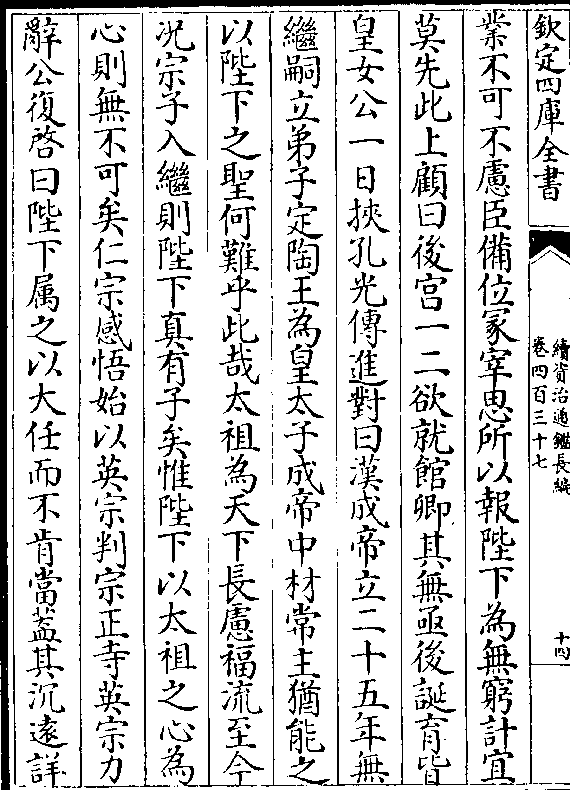 欽定四庫全書
續資治通鑑長編
卷四百三十七
十四
業不可不慮臣備位冡宰思所以報陛下為無窮計宜
莫先此上顧曰後宫一二欲就館卿其無亟後誕育皆
皇女公一日挾孔光傳進對曰漢成帝立二十五年無
繼嗣立弟子定陶王為皇太子成帝中材常主猶能之
以陛下之聖何難乎此哉太祖為天下長慮福流至今
况宗子入繼則陛下真有子矣惟陛下以太祖之心為
心則無不可矣仁宗感悟始以英宗判宗正寺英宗力
辭公復啓曰陛下属之以大任而不肯當葢其沉遠詳